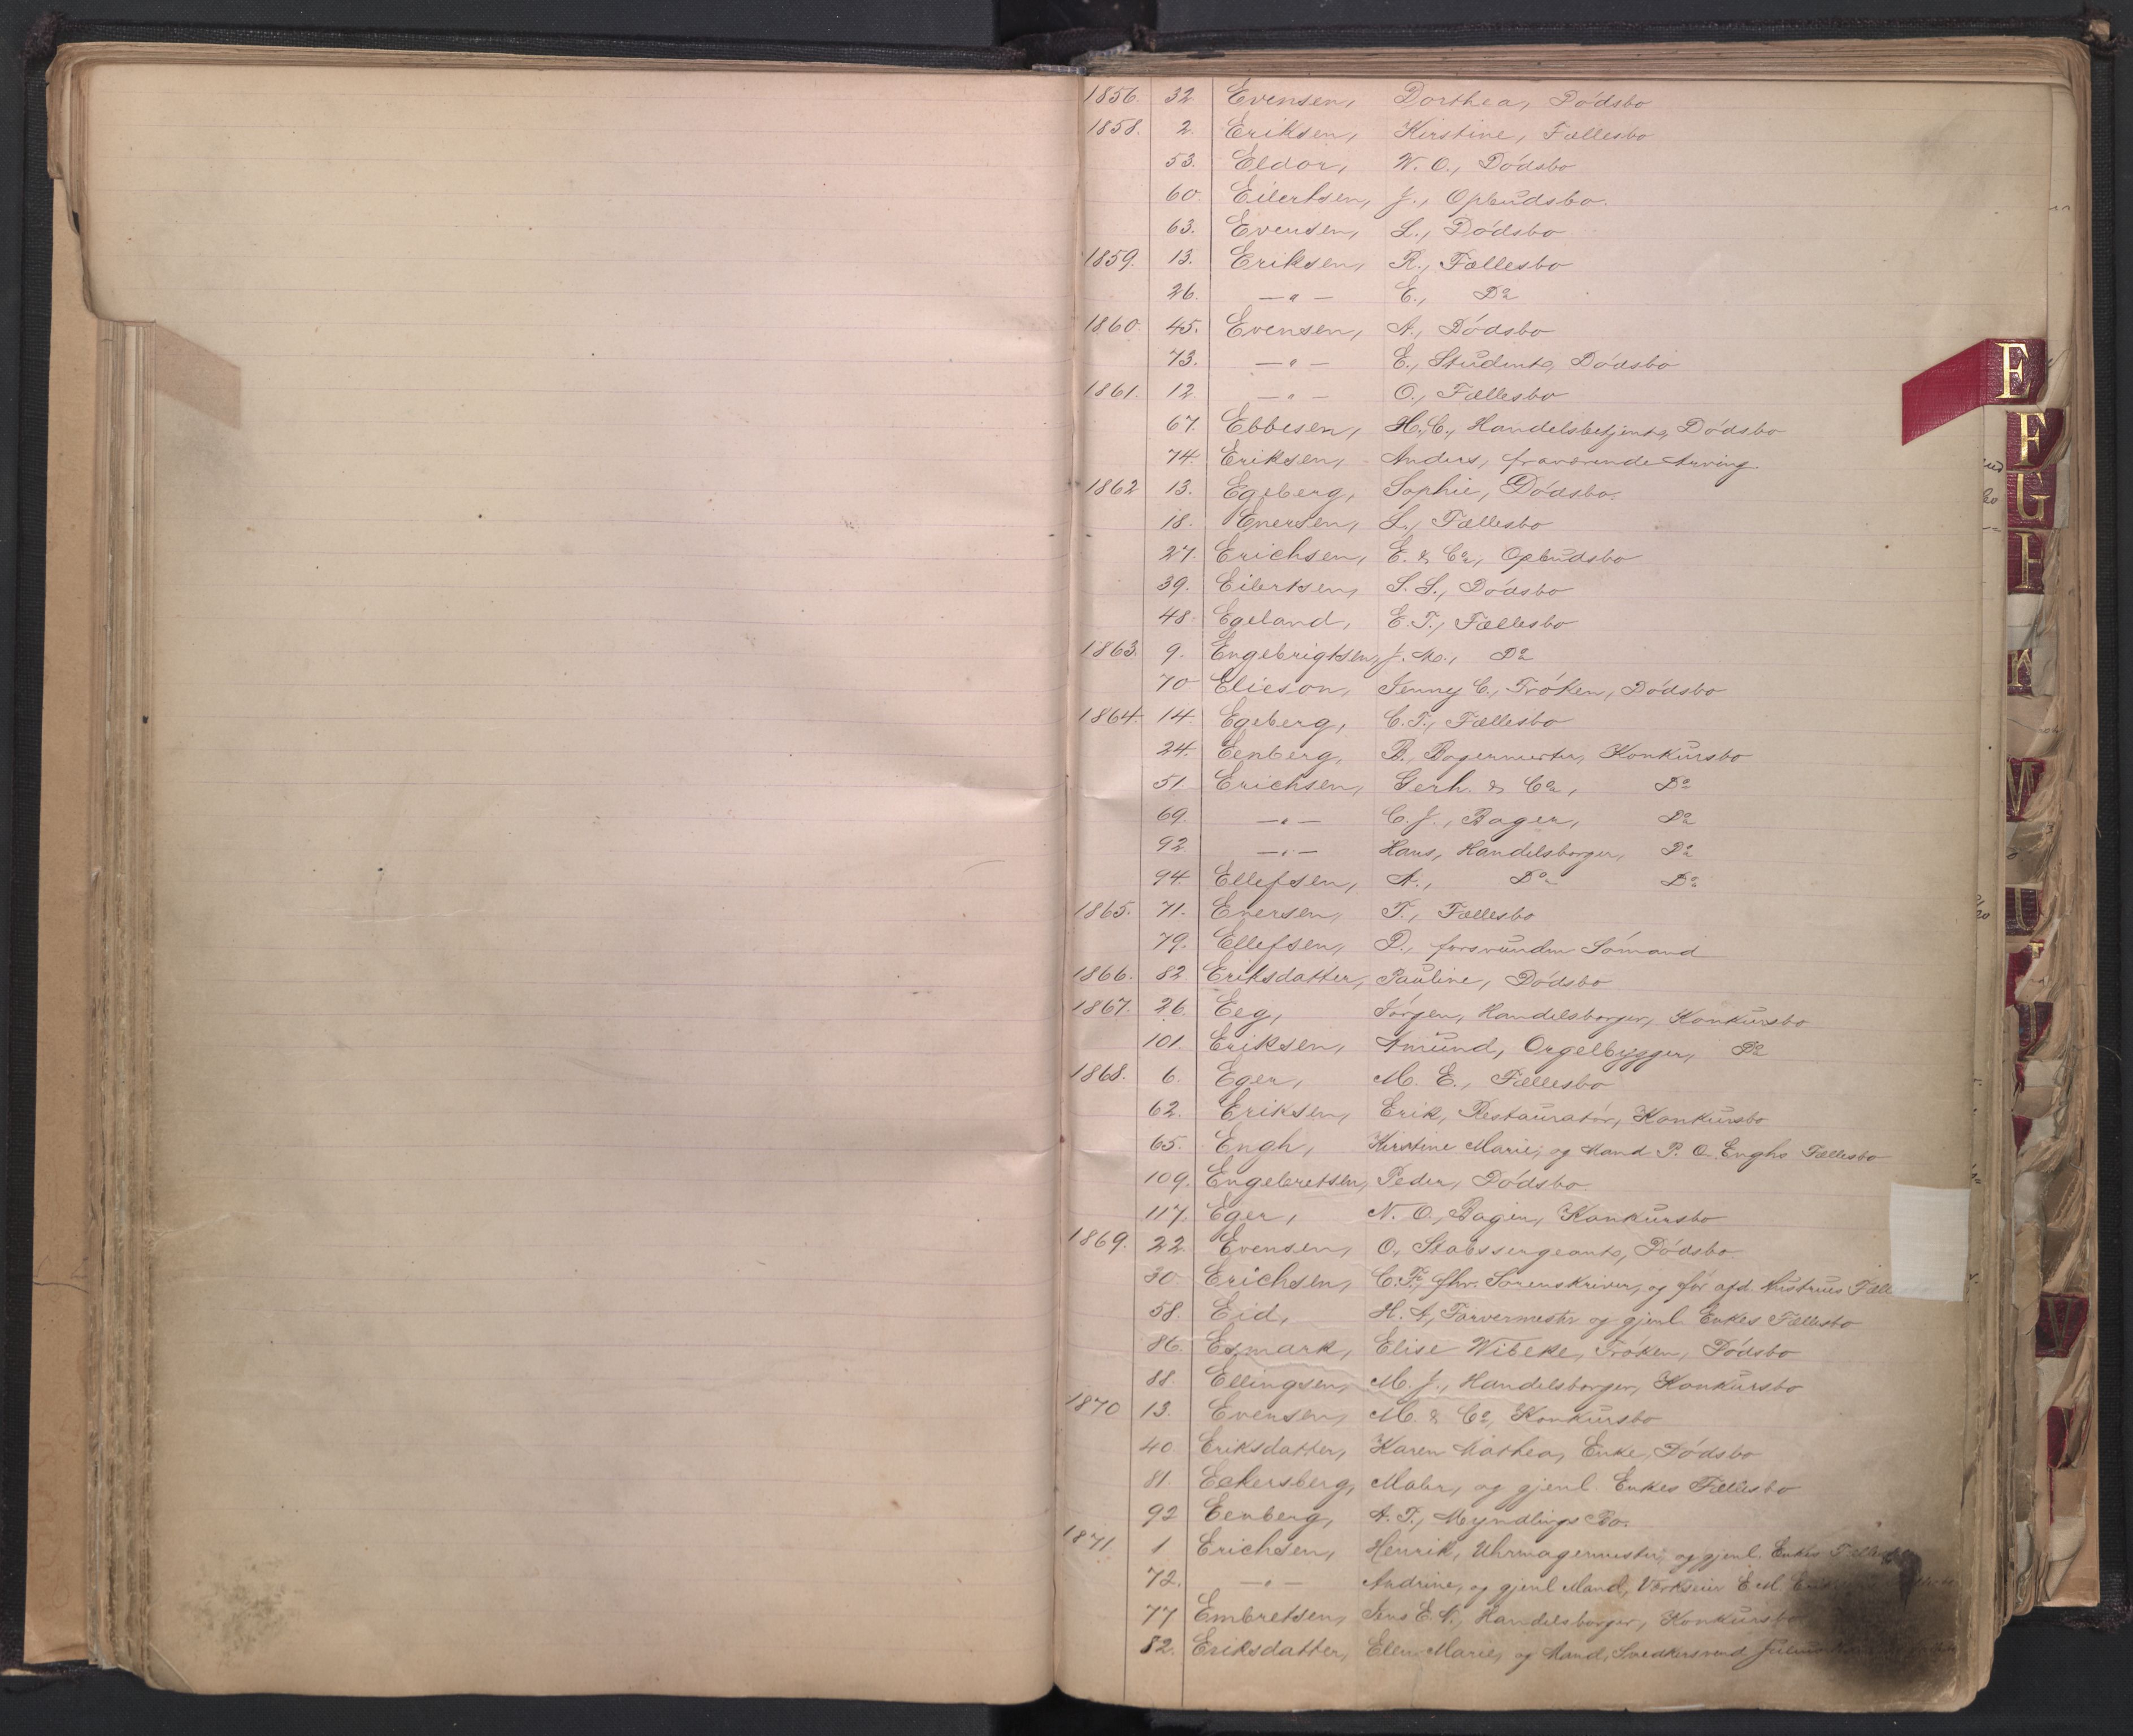 1856. 32 Evensen, Dorthea, Dódsbo
1858. 2. Eriksen, Kirstine, Fællesbo
53. Eldor, W. O., Dódsbo
60. Eilertsen, J., Opbudsbo.
63. Evensen, L., Dódsbo
1859. 13. Eriksen, R., Fællesbo
26. — " — E., Do
1860. 45. Evensen, A., Dódsbo
73. — " — E., Students, Dódsbo
1861. 12 — " — O., Fællesbo
67. Ebbesen, H. C., Handelsbetjents, Dódsbo
74. Eriksen, Anders, fraværende Arving.
1862 13. Egeberg, Sophie, Dódsbo.
18. Enersen, L., Fællesbo
27. Erichsen, E. & Co, Opbudsbo
39. Eilertsen, S. S., Dódsbo
48. Egeland, E. T., Fællesbo
1863. 9. Engebrigtsen, J. M., Do
70 Elieson, Jenny C., Fróken, Dódsbo
1864. 14. Egeberg, C. T., Fællesbo
24. Eenberg, B., Bagermester, Konkursbo
51. Erichsen, Gerh. & Co, Do
69. — " — C. J., Bager, Do
92. — " — Hans, Handelsborger, Do
94. Ellefsen, A., Do Do
1865. 71. Evensen, T., Fællesbo
79. Ellefsen, D., forsvunden Sómand
1866. 82. Eriksdatter, Pauline, Dódsbo
1867. 26. Eeg, Jórgen, Handelsborger, Konkursbo
101. Eriksen, Amund, Orgelbygger, Do
1868. 6. Eger, M. E., Fællesbo
62. Eriksen, Erik, Restauratór, Konkursbo
65. Engh, Kirstine Marie, og Mand P. O. Enghs Fællesbo
109. Engebretsen, Peder, Dódsbo.
117. Eger, N. O., Bager, Konkursbo
1869. 22. Evensen, O., Stabssergeants, Dódsbo
30. Erichsen, C. F., fhv. Sorenskriver, og fór afd. Hustrues Fælle
58. Eid, H. A., Farvermester og gjenl. Enkes Fællesbo
86. Esmark, Elise Wibeke, Fróken, Dódsbo
88. Ellingsen, M. J., Handelsborger, Konkursbo
1870 13. Evensen, M. & Co, Konkursbo
40. Eriksdatter, Karen Mathea, Enke, Dódsbo
81. Eckersberg, Maler, og gjenl. Enkes Fællesbo
92 Eenberg, A. T., Myndlings Bo.
1871 1 Erichsen, Henrik, Uhrmagermester, og gjenl. Enkes Fællesbo
72. — " — Andrine, og gjenl Mand, Værkseier E M
77 Embretsen, Jens E. N., Handelsborger, Konkursbo
82. Eriksdatter, Ellen Marie, og Mand, Snedkersvend
E
F
G